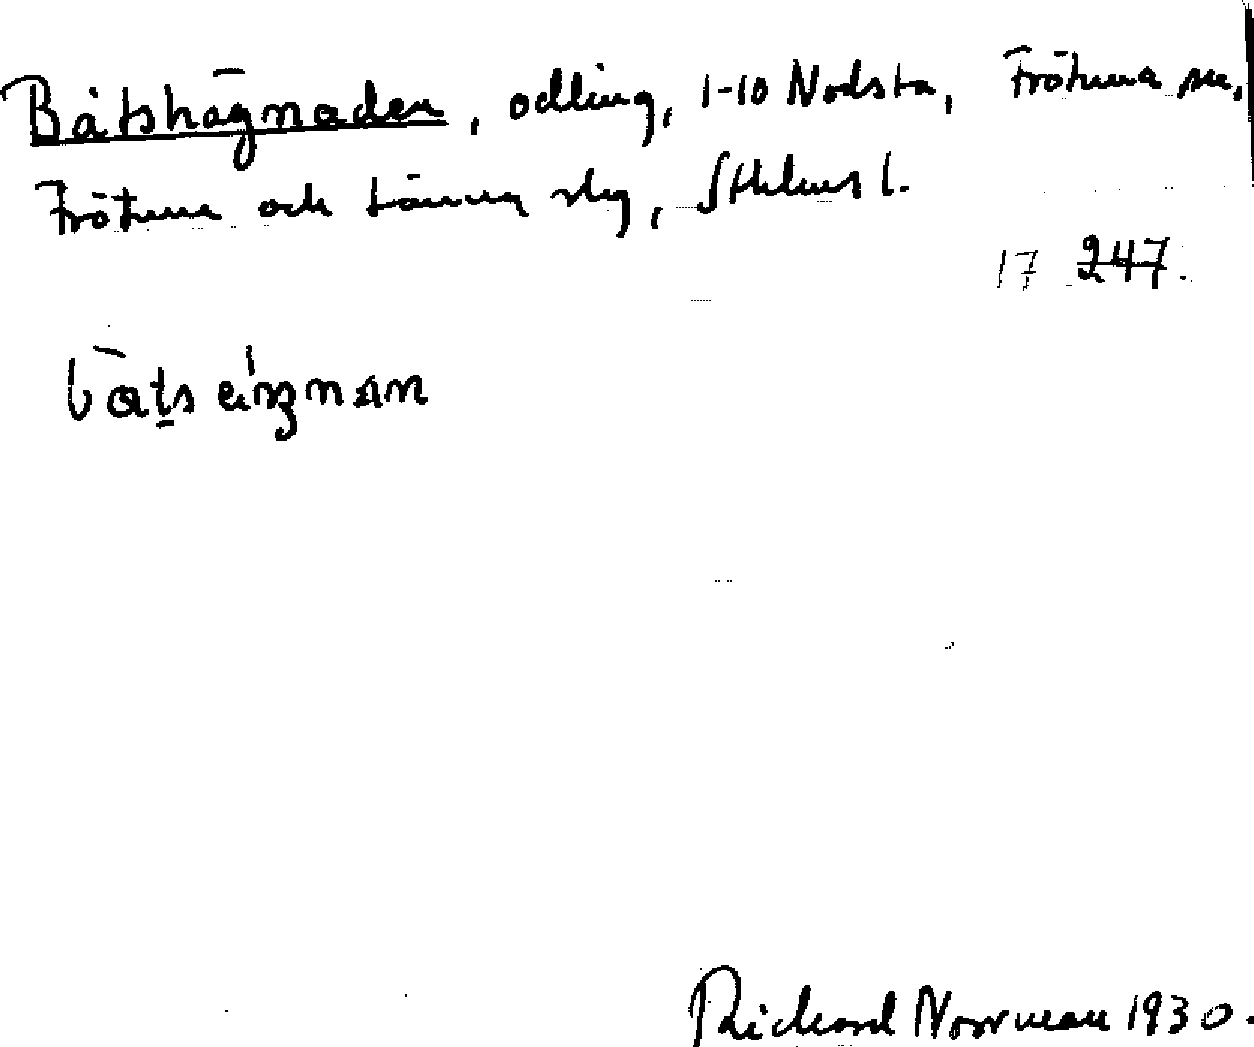 Båtshägnaden, odling, 1-10 Nodsta, Frötuna sn,
Frötuna och Länna slg, Sthlms l.
17 247.
bàtseŋnan
Rickard Norrman 1930.